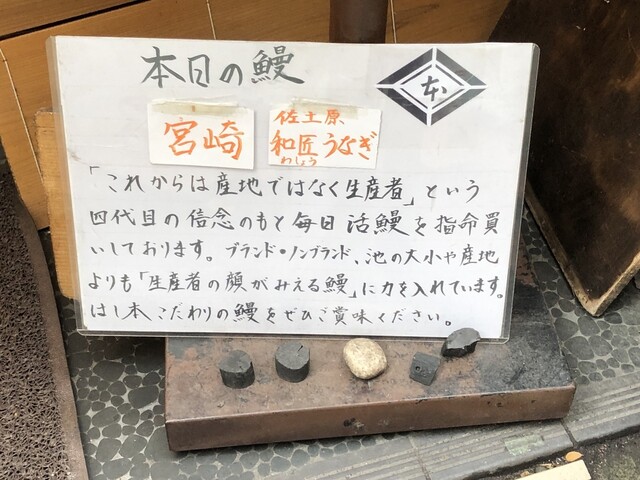 本日の鰻
本
宮崎
佐土原
和匠うなぎ
わしょう
「これからは産地ではなく生産者」という
四代目の信念のもと毎日活鰻を指命買
いしております。ブランド・ノンブランド、池の大小や産地
よりも「生産者の顔がみえる鰻」に力を入れています。
はし本こだわりの鰻をぜひご賞味ください。